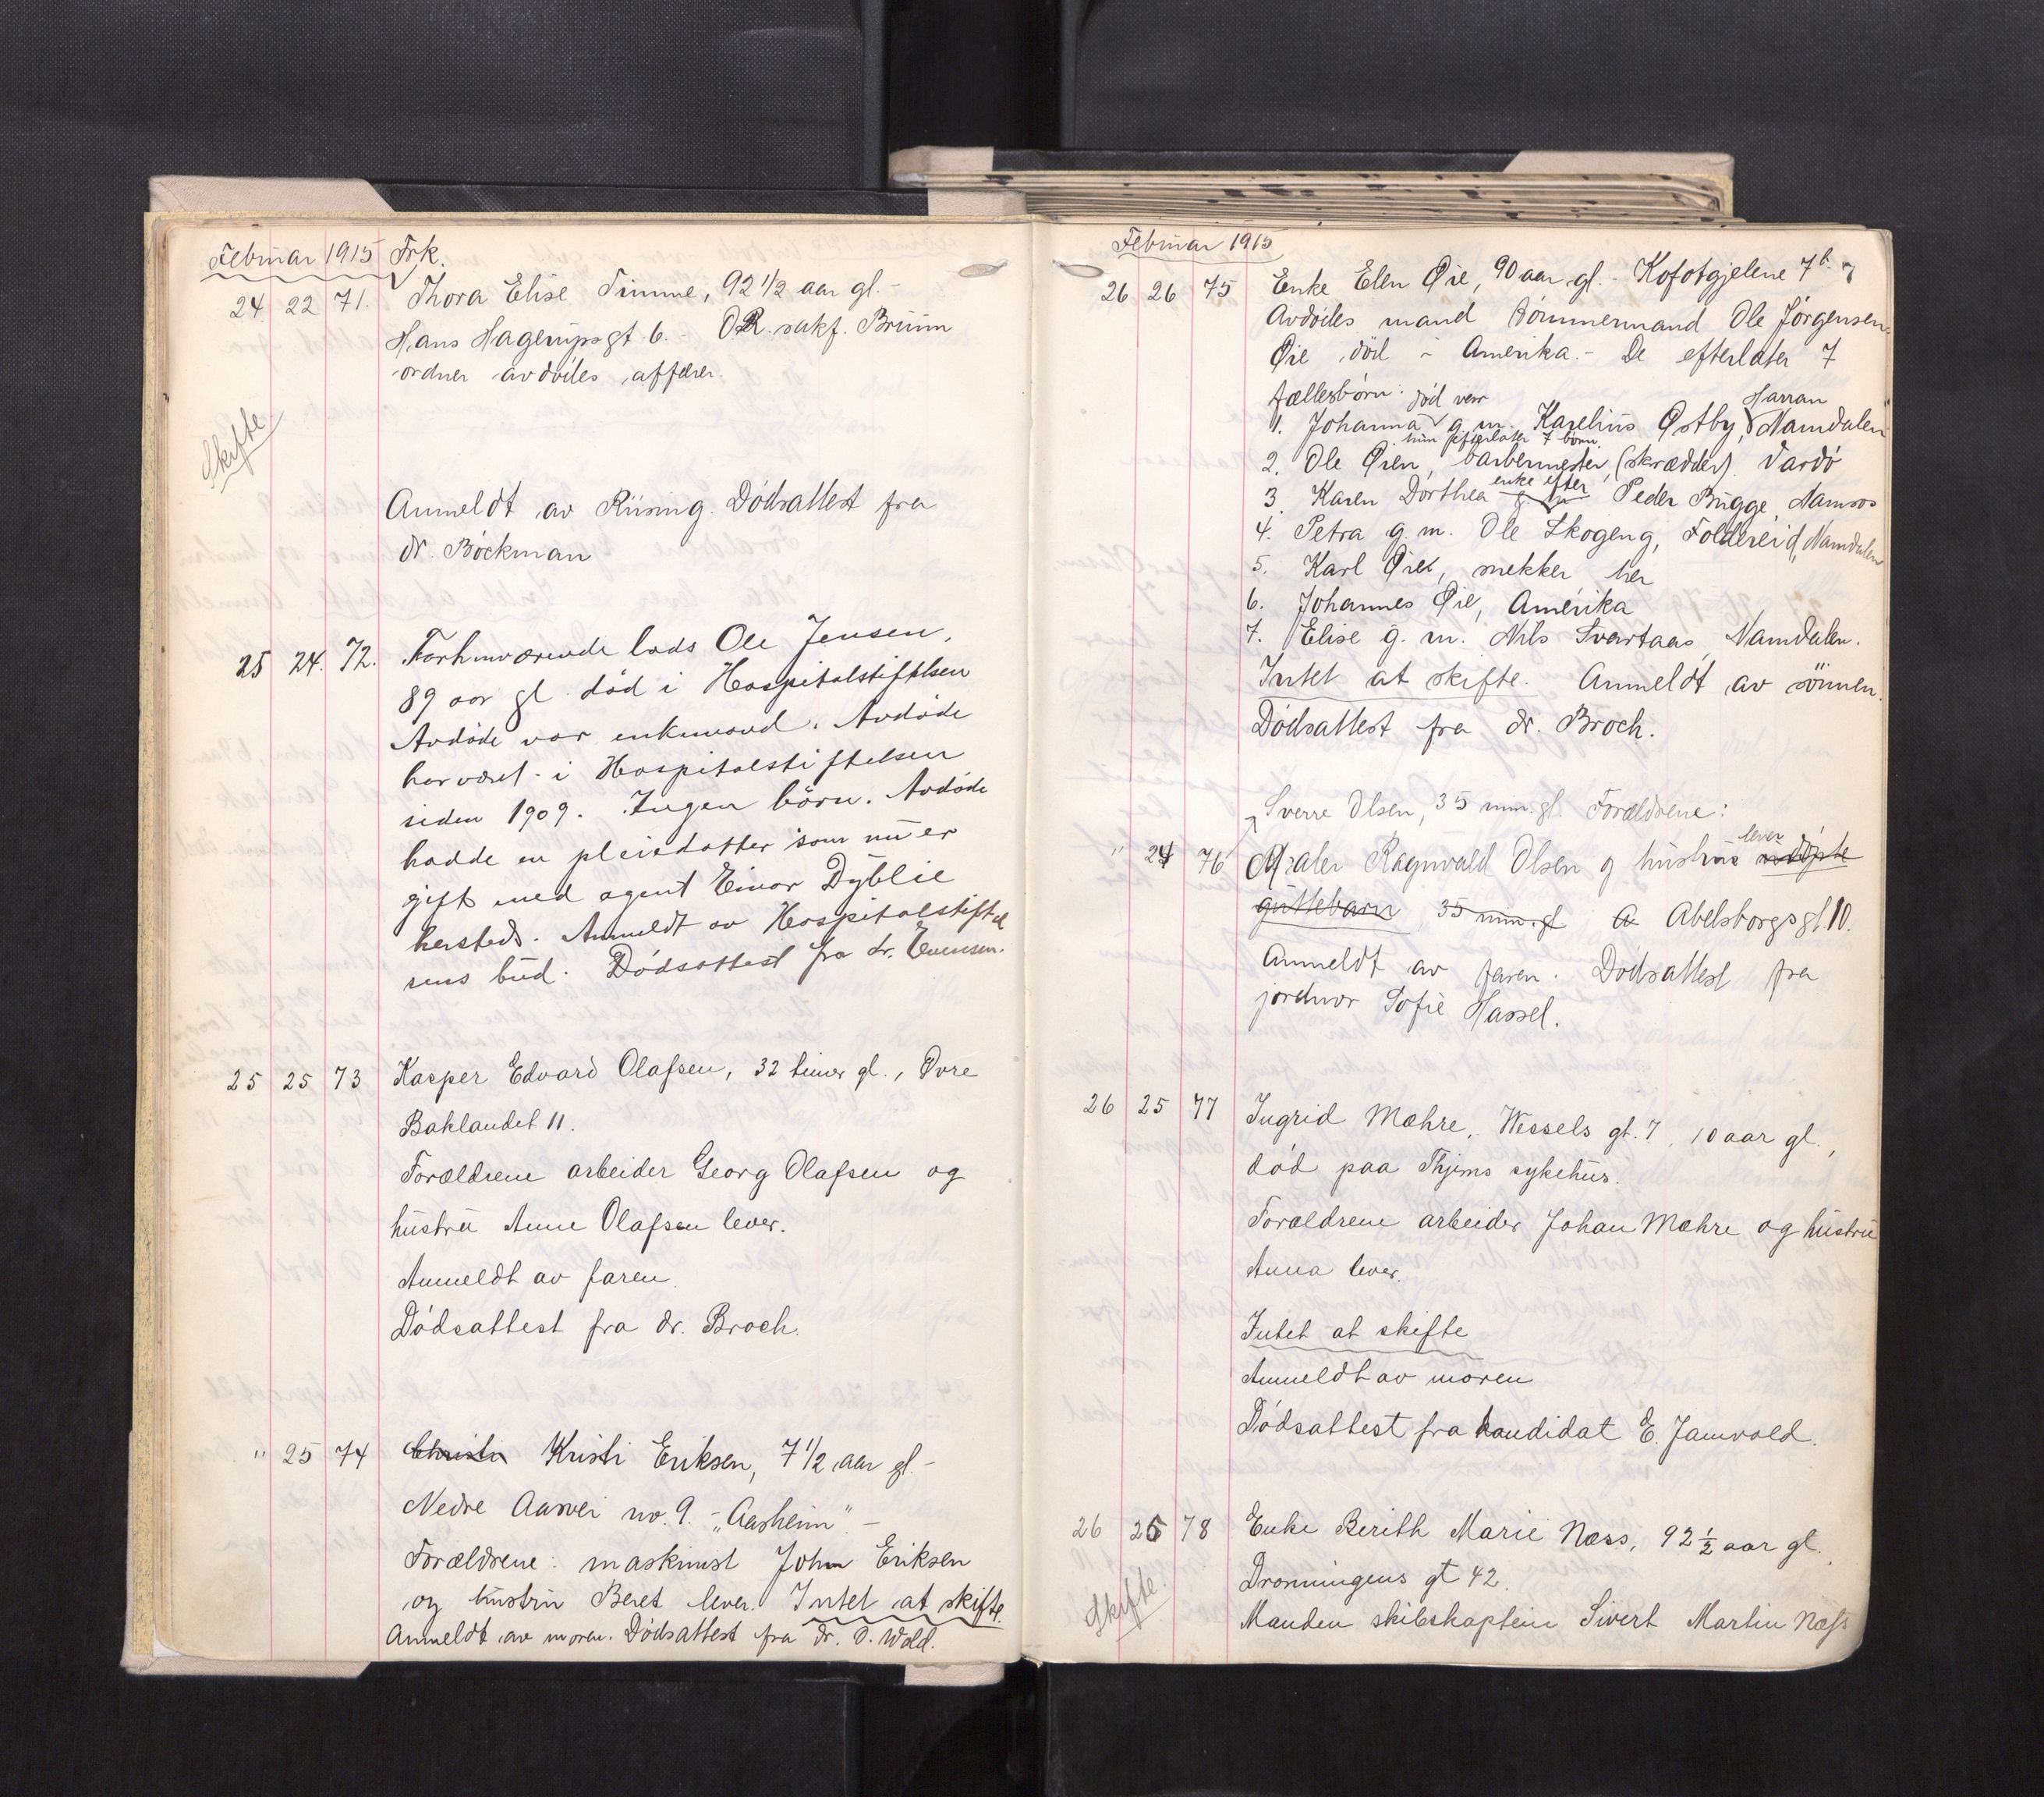 Februar 1915 Frk.
24. 22 71. Thora Elise Timme, 92 1/2 aar gl. -
Hans Hagerupsgt. 6. - O.R. sakf. Bruun
ordner avdødes affærer.
Skifte.
Anmeldt av Riising. Dødsattest fra
dr. Bøckman
25 24. 72. Forhenværende lods Ole Jensen,
89 aar gl. død i Hospitalstiftelsen
Avdøde var enkemand. Avdøde
har været i Hospitalstiftelsen
siden 1909. Ingen børn. Avdøde
hadde en pleiedatter som nu er
gift med agent Einar Dyblie
hersteds. Anmeldt av Hospitalstiftel
sens bud. Dødsattest fra dr. Evensen.
25 25 73 Kasper Edvard Olafsen, 32 timer gl., Øvre
Baklandet 11.
Forældrene arbeider Georg Olafsen og
hustru Anne Olafsen lever.
Anmeldt av faren.
Dødsattest fra dr. Broch.
" 25 74 Christi Kristi Eriksen, 7 1/2 aar gl. -
Nedre Aasvei no. 9. - "Aasheim". -
Forældrene: maskinist John Eriksen
og hustru Beret lever. Intet at skifte.
Anmeldt av moren. Dødsattest fra dr. O. Wold.
Februar 1915
26 26 75 Enke Elen Øie, 90 aar gl. - Kofotgjelene 7 b.
Avdødes mand tømmermand Ole Jørgensen
Øie død i Amerika. - De efterlater 7
fællesbørn:
død var Harran
1. Johanna g. m. Karelius Østby, Namdalen
hun efterlater 7 børn
2. Ole Øien, barbermester (skrædder). Vardø
enke efter
3. Karen Dorthea g. m. Peder Bugge, Namsos
4. Petra g. m. Ole Skogeng, Foldereid, Namdalen
5. Karl Øie, snekker her
6. Johannes Øie, Amerika
7. Elise g. m. Nils Svartaas, Namdalen.
Intet at skifte. Anmeldt av sønnen.
Dødsattest fra dr. Broch.
Sverre Olsen, 35 min. gl. Forældrene:
lever
" 24 76 Maler Ragnvald Olsen og hustru udøpte
guttebarn 35 min. gl. Abelsborgsgt. 10.
Anmeldt av faren. Dødsattest fra
jordmor Sofie Hassel.
26 25 77 Ingrid Mæhre, Wessels gt. 7, 10 aar gl.,
død paa Thjems sykehus.
Forældrene arbeider Johan Mæhre og hustru
Anna lever.
Intet at skifte
Anmeldt av moren
Dødsattest fra kandidat E. Jamvold.
26 26 78 Enke Berith Marie Næss, 92 1/2 aar gl.,
Skifte.
Dronningens gt 42.
Manden skibskaptein Sivert Martin Næss